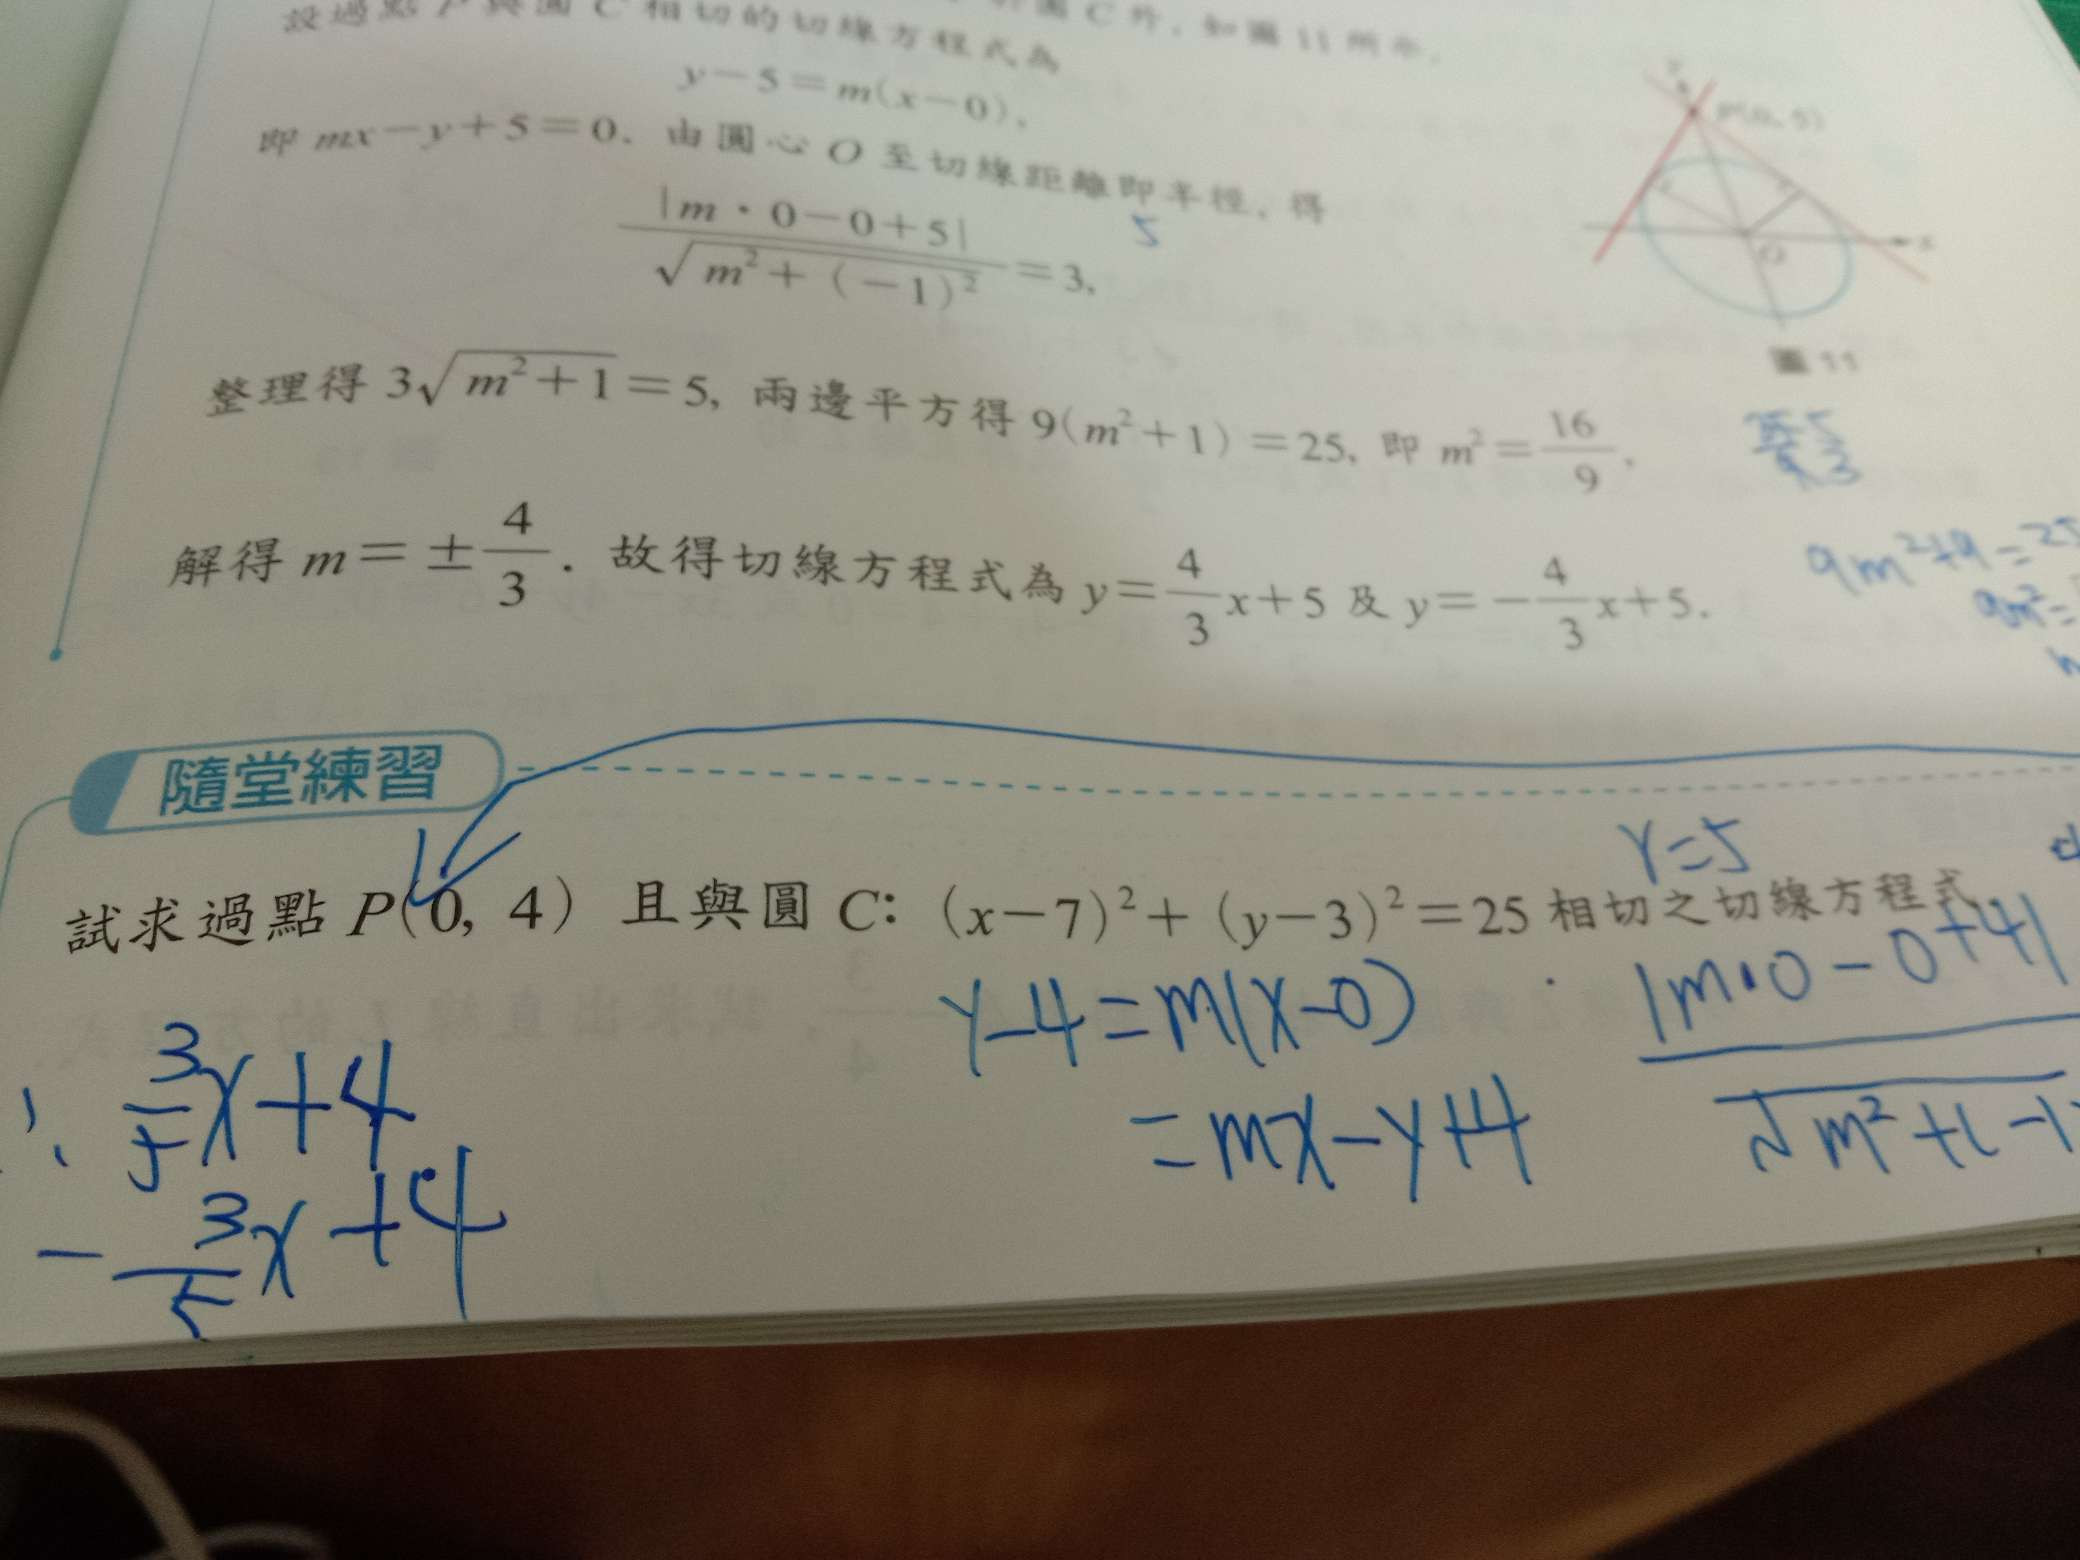 設過點 P 與圓 C 相切的切線方程式為
圓 C 外, 如圖 11 所示.
y－5＝m(x－0),
即 mx－y＋5＝0. 由圓心 O 至切線距離即半徑, 得
|m・0－0＋5| / √(m²＋(－1)²) ＝3,
5
P(0, 5)
O
x
圖 11
整理得 3√(m²＋1)＝5, 兩邊平方得 9(m²＋1)＝25, 即 m²＝16/9,
解得 m＝±4/3. 故得切線方程式為 y＝4/3 x＋5 及 y＝－4/3 x＋5.
9m²+9=25
9m²=
隨堂練習
y=5
試求過點 P(0, 4) 且與圓 C: (x－7)²＋(y－3)²＝25 相切之切線方程式.
y-4=m(x-0)
=mx-y+4
|m·0-0+4|
√m²+(-1)
∴ 3/5 x+4
-3/5 x+4